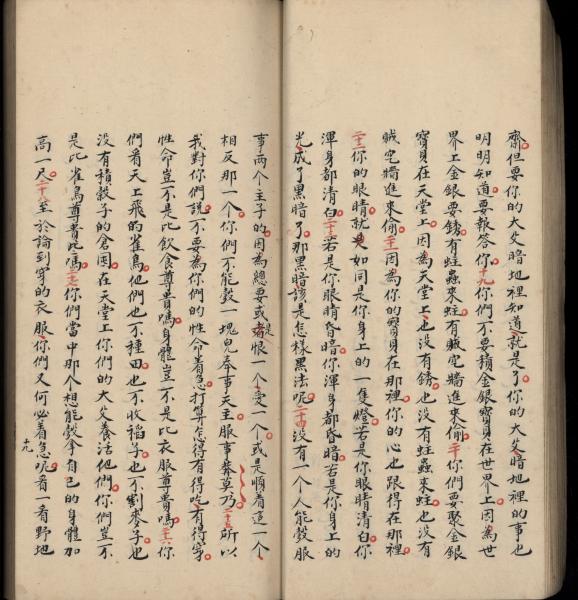 齋但要你的大父暗地裡知道就是了你的大父暗地裡的事也
明明知道要報答你十九你們不要積金銀寶貝在世界上因為世
界上金銀要銹有蛀蟲來蛀有賊宅牆進來偷二十你們要聚金銀
寶貝在天堂上因為天堂上也沒有銹也沒有蛀蟲來蛀也沒有
賊宅牆進來偷二一因為你的寶貝在那裡你的心也跟得在那裡
二十二你的眼睛就是如同是你身上的一隻燈若是你眼睛清白你
渾身都清白二十三若是你眼睛昏暗你渾身都昏暗若是你身上的
光成了黑暗了那黑暗該是怎樣黑法呢二十四沒有一个人能彀服
事兩个主子的因為總要或者是恨一个愛一个或是順着這一个
相反那一个你們不能彀一塊兒奉事天主服事莽莫乃二十五所以
我對你們說不要為你們的性命着急打算怎得有得吃有得穿
性命豈不是比飲食尊貴嗎身體豈不是比衣服尊貴嗎二十六你
們看天上飛的雀鳥他們也不種田也不收稻子也不割麥子也
沒有積穀子的倉囤在天堂上你們的大父養活他們你們豈不
是比雀鳥尊貴些嗎二十七你們當中那个想能彀拿自己的身體加
高一尺二十八至於論到穿的衣服你們又何必着急呢看一看野地
十九